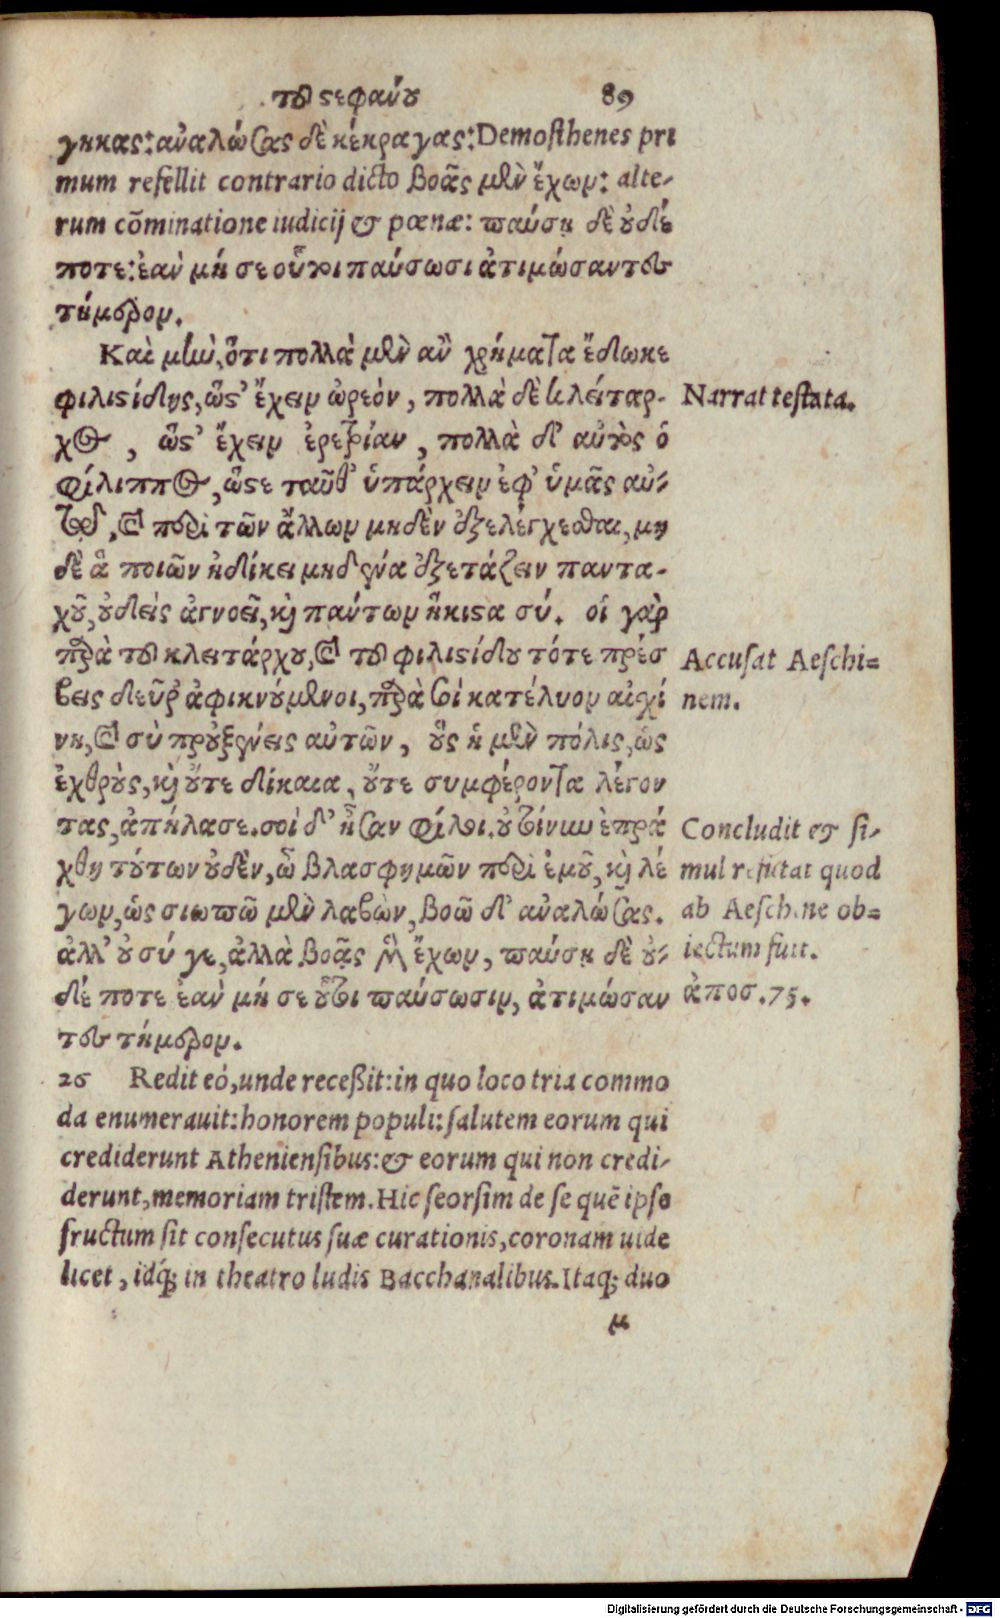 τοῦ στεφάνου 89
γηκας: ἀναλώσας δὲ κέκραγας: Demosthenes pri
mum refellit contrario dicto βοᾷς μὲν ἔχων: alte-
rum cõminatione iudicij & pœnæ: παύσῃ δὲ οὐδέ
ποτε: ἐὰν μή σε οὗτοι παύσωσι ἀτιμώσαντες
τήμερον.
Καὶ μὴν, ὅτι πολλὰ μὲν ἂν χρήματα ἔδωκε
φιλιστίδης, ὥστ' ἔχειν ὠρεὸν, πολλὰ δὲ κλείταρ-
χος, ὥστ' ἔχειν ἐρετρίαν, πολλὰ δ' αὐτὸς ὁ
φίλιππος, ὥστε ταῦθ' ὑπάρχειν ἐφ' ὑμᾶς αὐ-
τῷ, καὶ περὶ τῶν ἄλλων μηδὲν ἐξελέγχεσθαι, μη
δὲ ἃ ποιῶν ἠδίκει μηδένα ἐξετάζειν παντα-
χοῦ, οὐδεὶς ἀγνοεῖ, καὶ πάντων ἥκιστα σύ. οἱ γὰρ
παρὰ τοῦ κλειτάρχου, καὶ τοῦ φιλιστίδου τότε πρέσ
βεις δεῦρ' ἀφικνούμενοι, παρὰ σοὶ κατέλυον αἰσχί
νη, καὶ σὺ προὐξένεις αὐτῶν, οὓς ἡ μὲν πόλις, ὡς
ἐχθροὺς, καὶ οὔτε δίκαια, οὔτε συμφέροντα λέγον
τας, ἀπήλασε. σοὶ δ' ἦσαν φίλοι. οὐ τοίνυν ἐπρά
χθη τούτων οὐδὲν, ὦ βλασφημῶν περὶ ἐμοῦ, καὶ λέ
γων, ὡς σιωπῶ μὲν λαβὼν, βοῶ δ' ἀναλώσας.
ἀλλ' οὐ σύ γε, ἀλλὰ βοᾷς μὲν ἔχων, παύσῃ δὲ οὐ-
δέ ποτε ἐὰν μή σε οὗτοι παύσωσιν, ἀτιμώσαν
τες τήμερον.
26 Redit eó, unde receßit: in quo loco tria commo
da enumerauit: honorem populi: salutem eorum qui
crediderunt Atheniensibus: & eorum qui non credi-
derunt, memoriam tristem. Hic seorsim de se quẽ ipse
fructum sit consecutus suæ curationis, coronam uide
licet, idq́; in theatro ludis Bacchanalibus. Itaq; duo
μ
Narrat testata.
Accusat Aeschi=
nem.
Concludit & si-
mul refutat quod
ab Aeschine ob=
iectum fuit.
ἀποσ. 75.
Digitalisierung gefördert durch die Deutsche Forschungsgemeinschaft - DFG